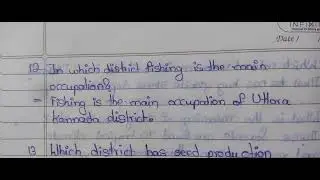 INFINI
Date:
12 In which district fishing is the main
occupation?
= Fishing is the main occupation of Uttara
Kannada district.
13 Which district has seed production